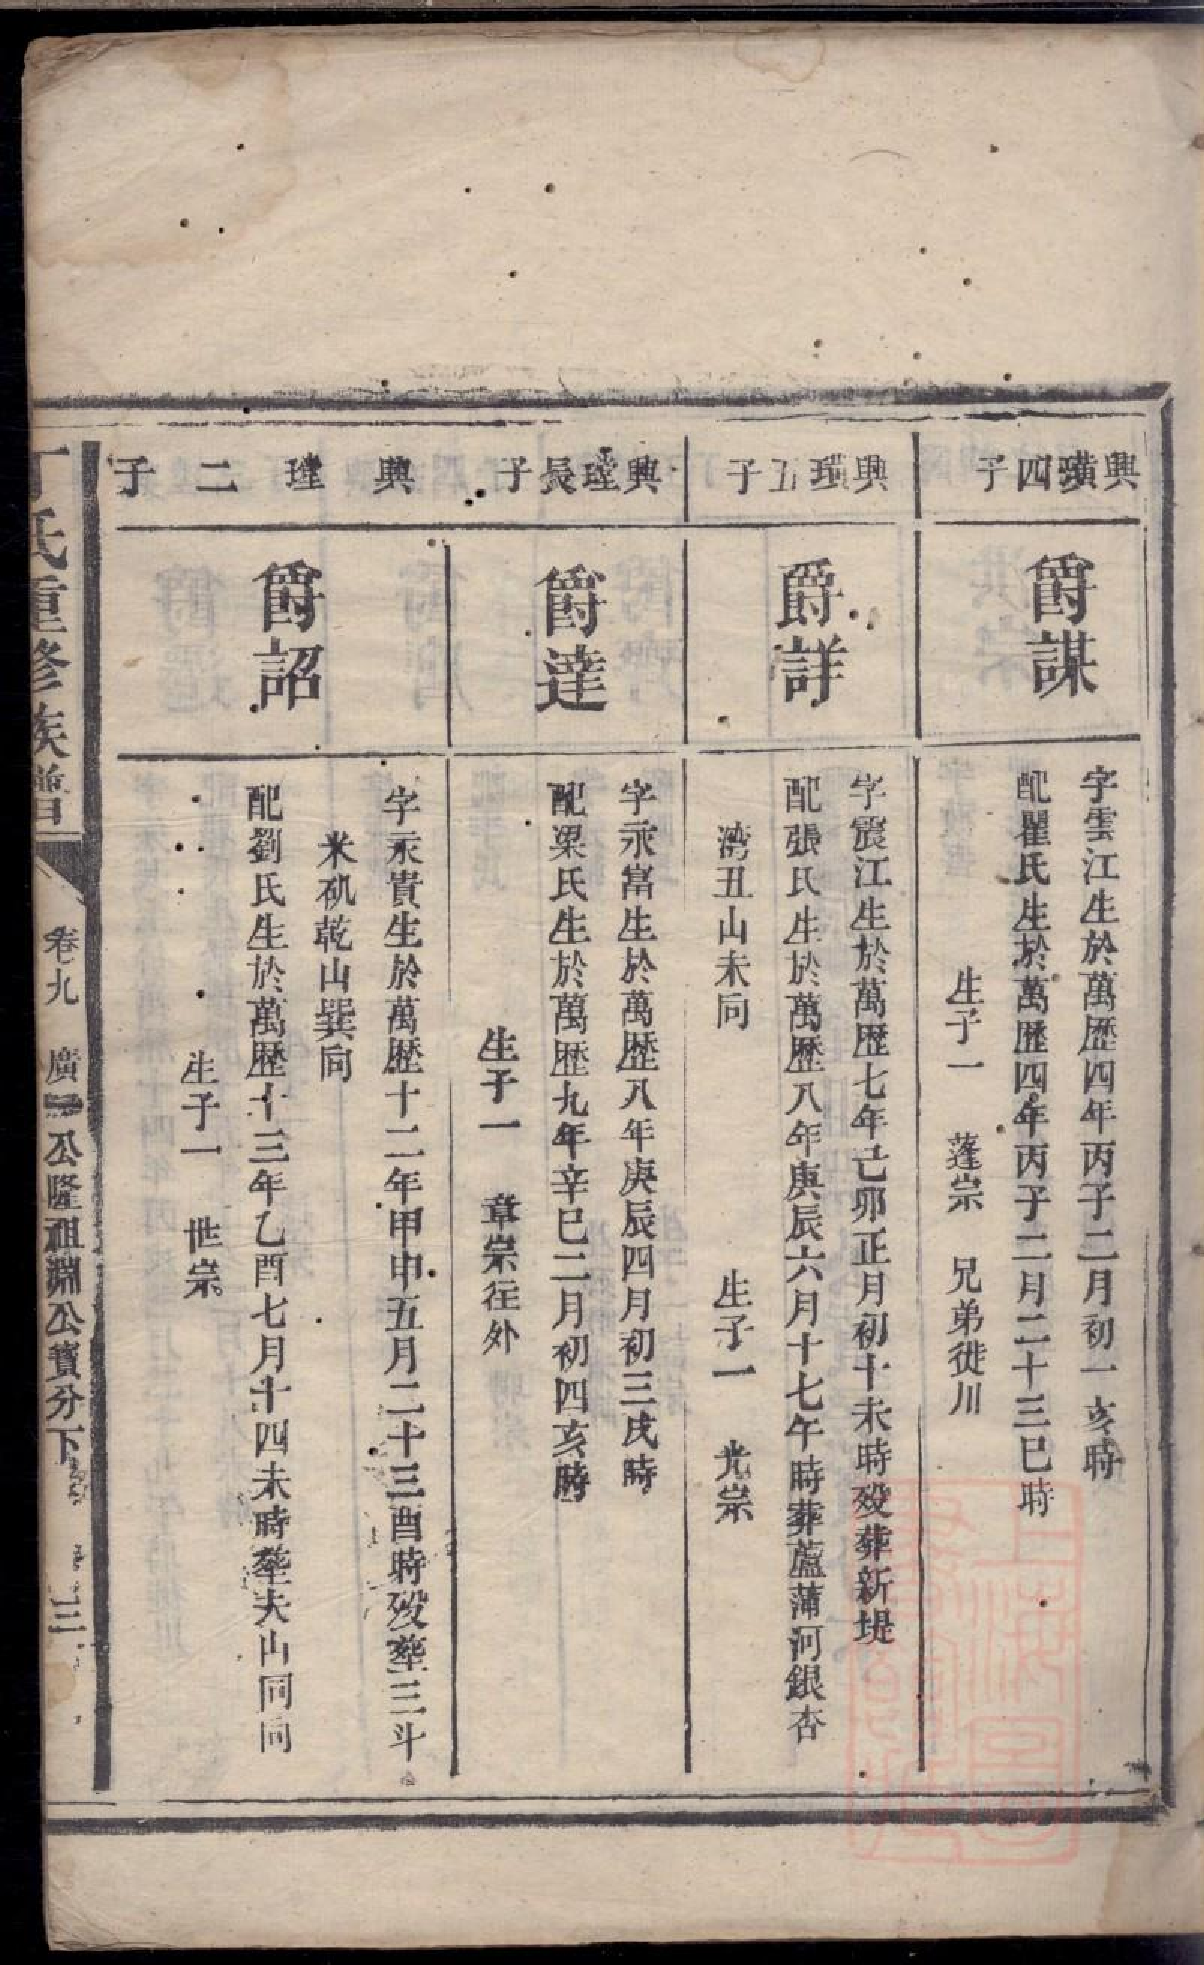 興璜四子
爵謀
字雲江生於萬歷四年丙子二月初一亥時
配瞿氏生於萬歷四年丙子二月二十三巳時
生子一 蓬宗 兄弟徙川
興璜五子
爵詳
字震江生於萬歷七年己卯正月初十未時歿葬新堤
配張氏生於萬歷八年庚辰六月十七午時葬蘆蒲河銀杏
湾丑山未向
生子一 光宗
興瑝長子
爵達
字永富生於萬歷八年庚辰四月初三戌時
配梁氏生於萬歷九年辛巳二月初四亥時
生子一 章宗往外
興瑝二子
爵詔
字永貴生於萬歷十二年甲申五月二十三酉時歿塟三斗
米矶乾山巽向
配劉氏生於萬歷十三年乙酉七月十四未時塟夫山同向
生子一 世宗
丁氏重修族譜
卷九 廣一公隆祖淵公寶分下 三